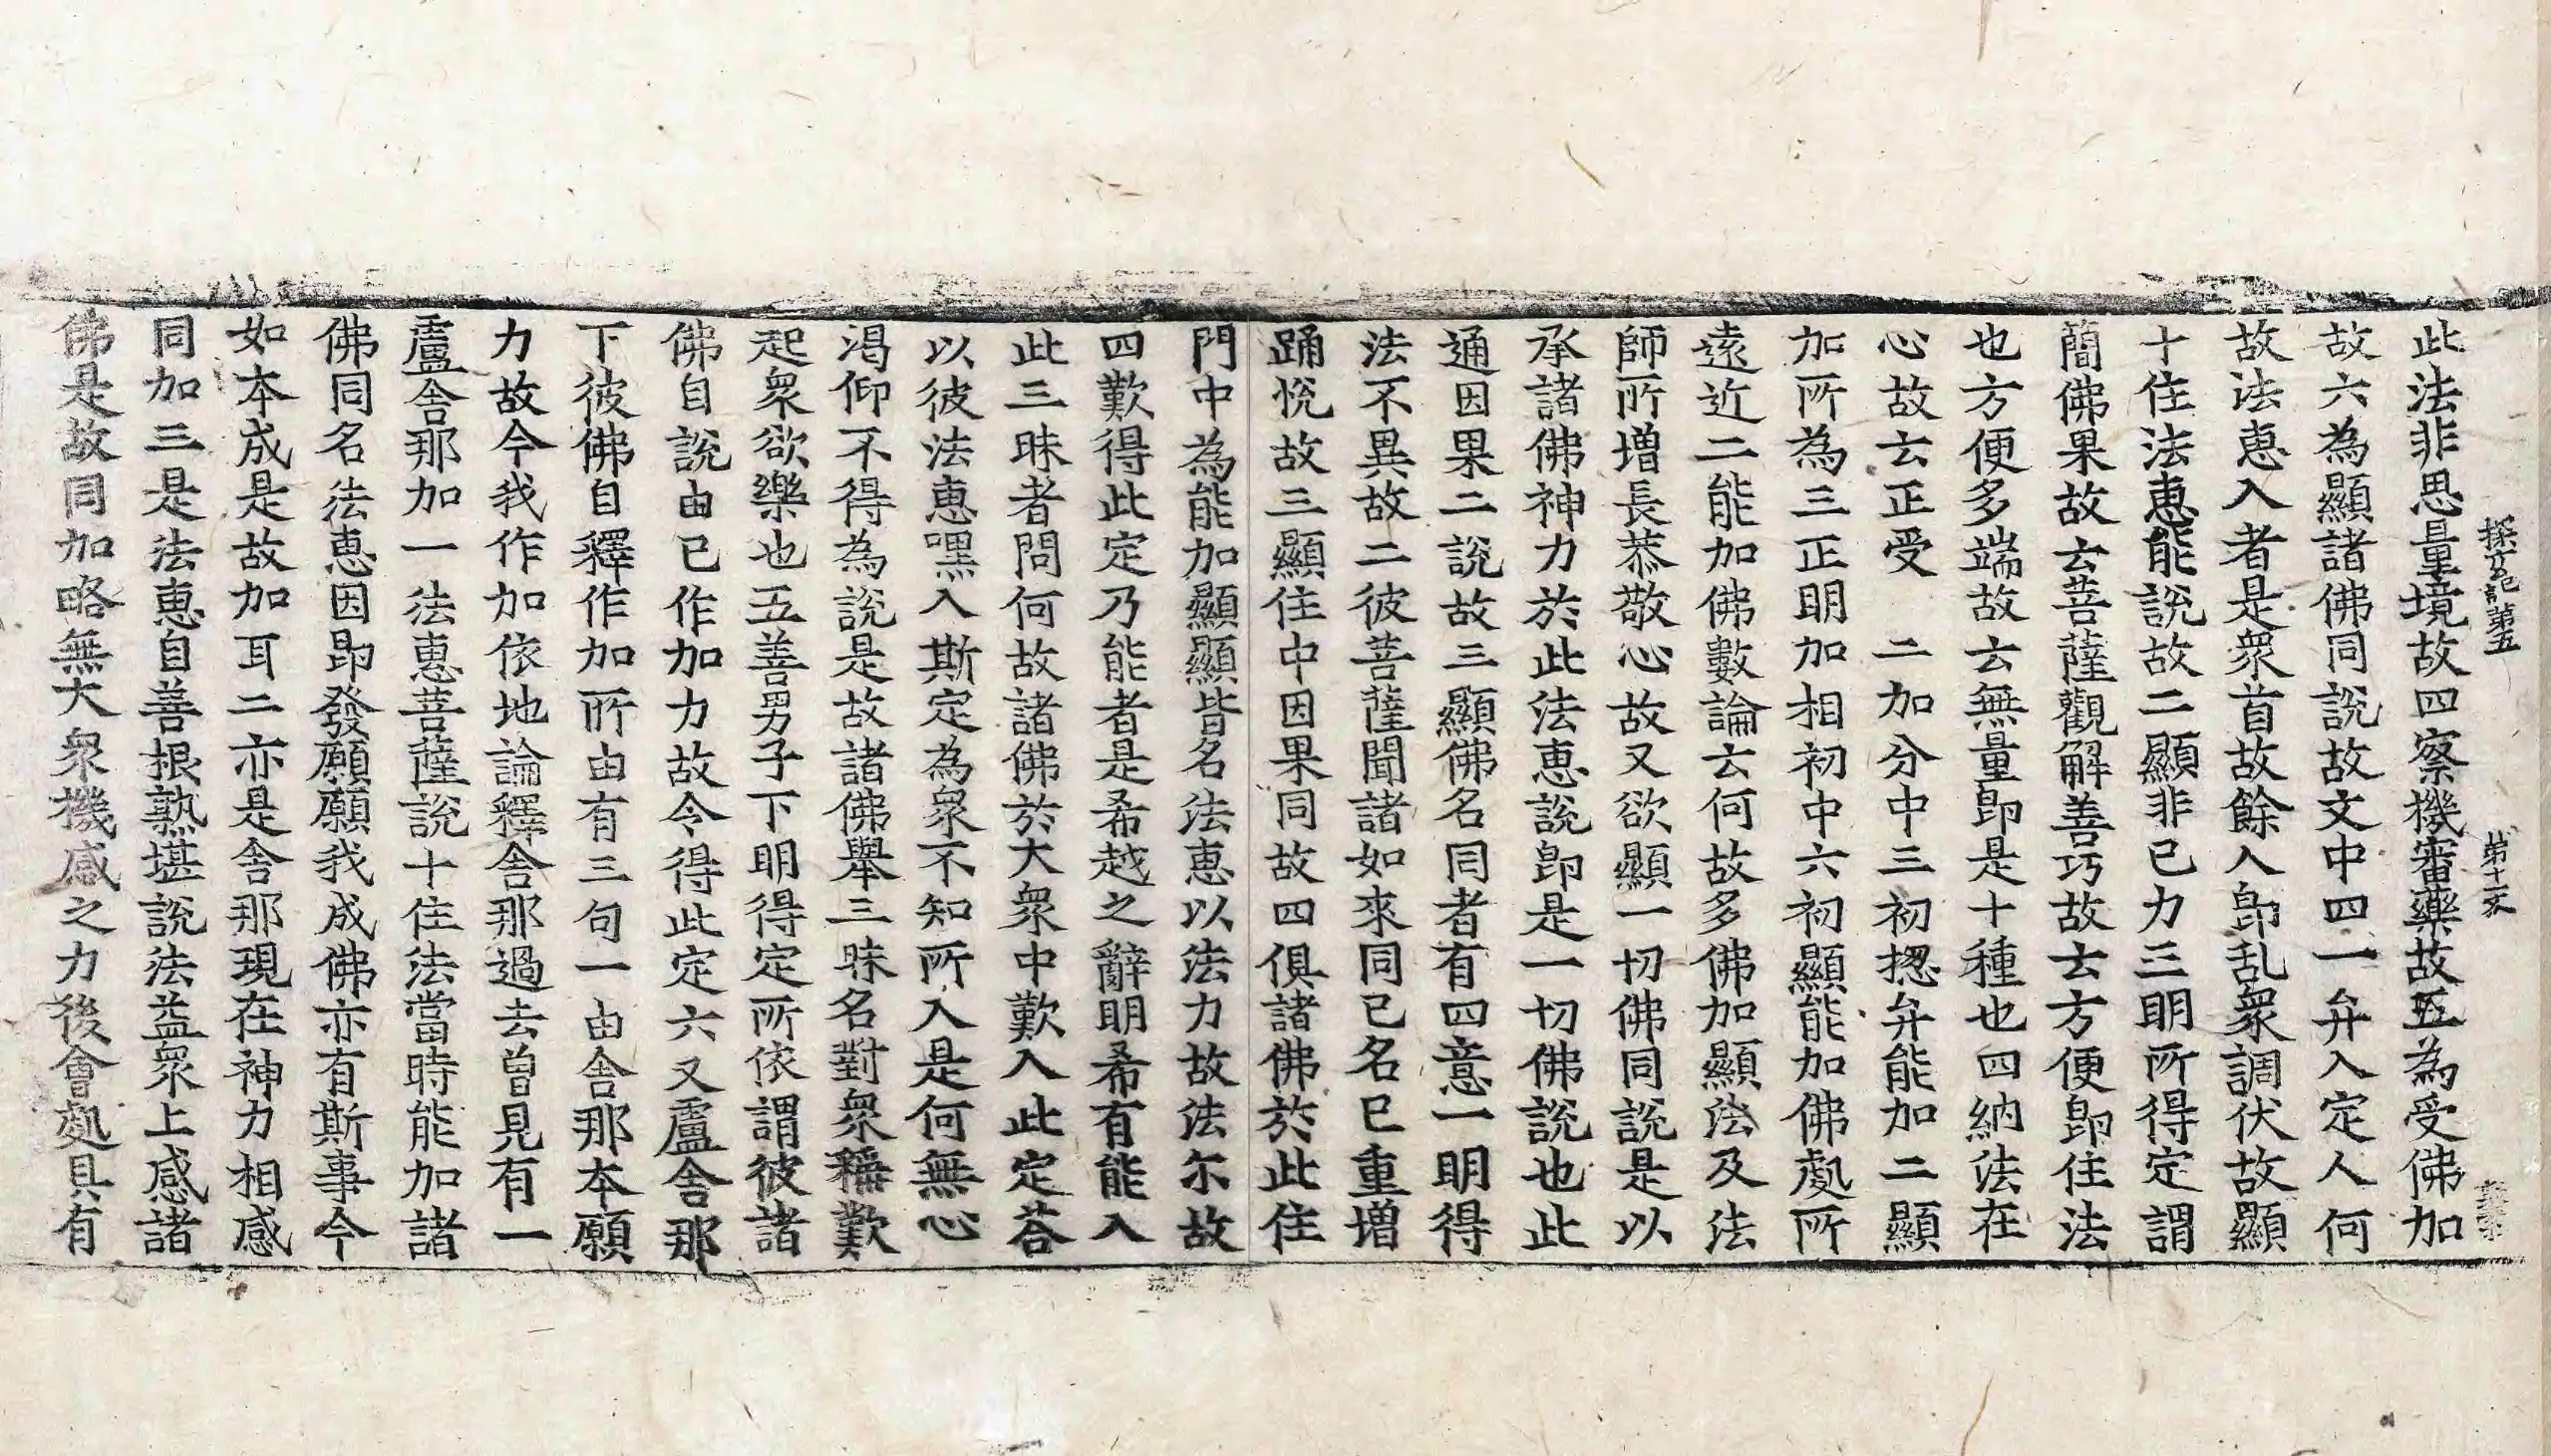 探玄記第五 第十一丈
此法非思量境故四察機審藥故五為受佛加
故六為顯諸佛同說故文中四一弁入定人何
故法惠入者是衆首故餘人即乱衆調伏故顯
十住法惠能說故二顯非已力三明所得定謂
簡佛果故云菩薩觀解善巧故云方便即住法
也方便多端故云無量即是十種也四納法在
心故云正受 二加分中三初揔弁能加二顯
加所為三正明加相初中六初顯能加佛處所
遠近二能加佛數論云何故多佛加顯法及法
師所增長恭敬心故又欲顯一切佛同說是以
承諸佛神力於此法惠說即是一切佛說也此
通因果二說故三顯佛名同者有四意一明得
法不異故二彼菩薩聞諸如來同已名已重增
踊悅故三顯住中因果同故四俱諸佛於此住
門中為能加顯顯皆名法惠以法力故法尓故
四歎得此定乃能者是希越之辭明希有能入
此三昧者問何故諸佛於大衆中歎入此定荅
以彼法惠嘿入斯定為衆不知所入是何無心
渴仰不得為說是故諸佛舉三昧名對衆稱歎
起衆欲樂也五善男子下明得定所依謂彼諸
佛自說由已作加力故令得此定六又盧舍那
下彼佛自釋作加所由有三句一由舍那本願
力故今我作加依地論釋舍那過去曾見有一
盧舍那加一法惠菩薩說十住法當時能加諸
佛同名法惠因即發願願我成佛亦有斯事今
如本成是故加耳二亦是舍那現在神力相感
同加三是法惠自善根熟堪說法益衆上感諸
佛是故同加略無大衆機感之力後會處具有